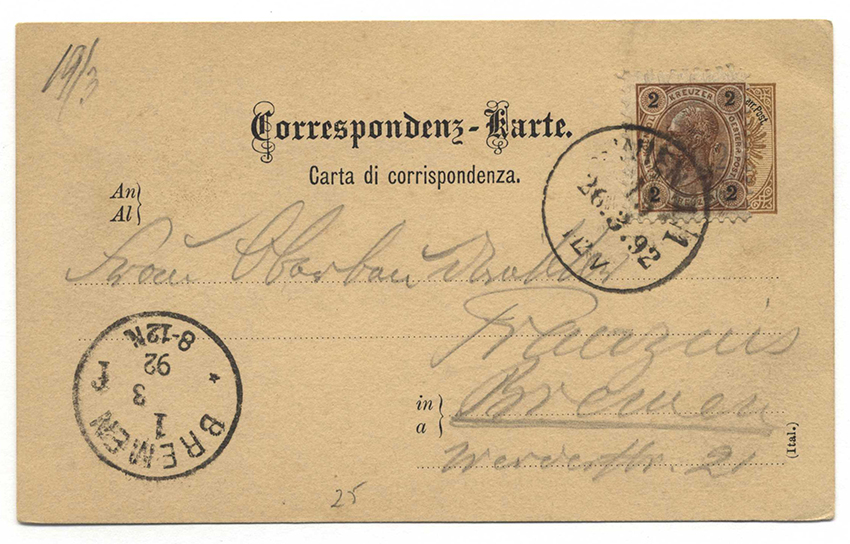 19/3
Correspondenz-Karte.
Carta di corrispondenza.
2 KREUZER 2
2 2
26.2.92
An
Al
Frau Oberbau
Franzius
in Bremen
a
Werderstr. 21
(Ital.)
BREMEN
1
3
92
8-12N
25